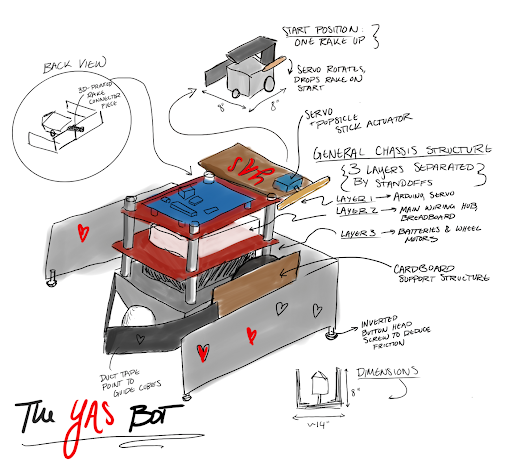 START POSITION:
ONE RAKE UP
SERVO ROTATES,
DROPS RAKE ON
START
8"
8"
BACK VIEW
3D-PRINTED
RAKE
CONNECTOR
PIECE
SERVO
+ POPSICLE
STICK ACTUATOR
SVR
GENERAL CHASSIS STRUCTURE
3 LAYERS SEPARATED
BY STANDOFFS
LAYER 1 → ARDUINO, SERVO
LAYER 2 → MAIN WIRING HUB,
BREADBOARD
LAYER 3 → BATTERIES & WHEEL
MOTORS
CARDBOARD
SUPPORT STRUCTURE
INVERTED
BUTTON HEAD
SCREW TO DEDUCE
FRICTION
DUCT TAPE
POINT TO
GUIDE CUBES
DIMENSIONS
8"
~14"
The YAS BOT